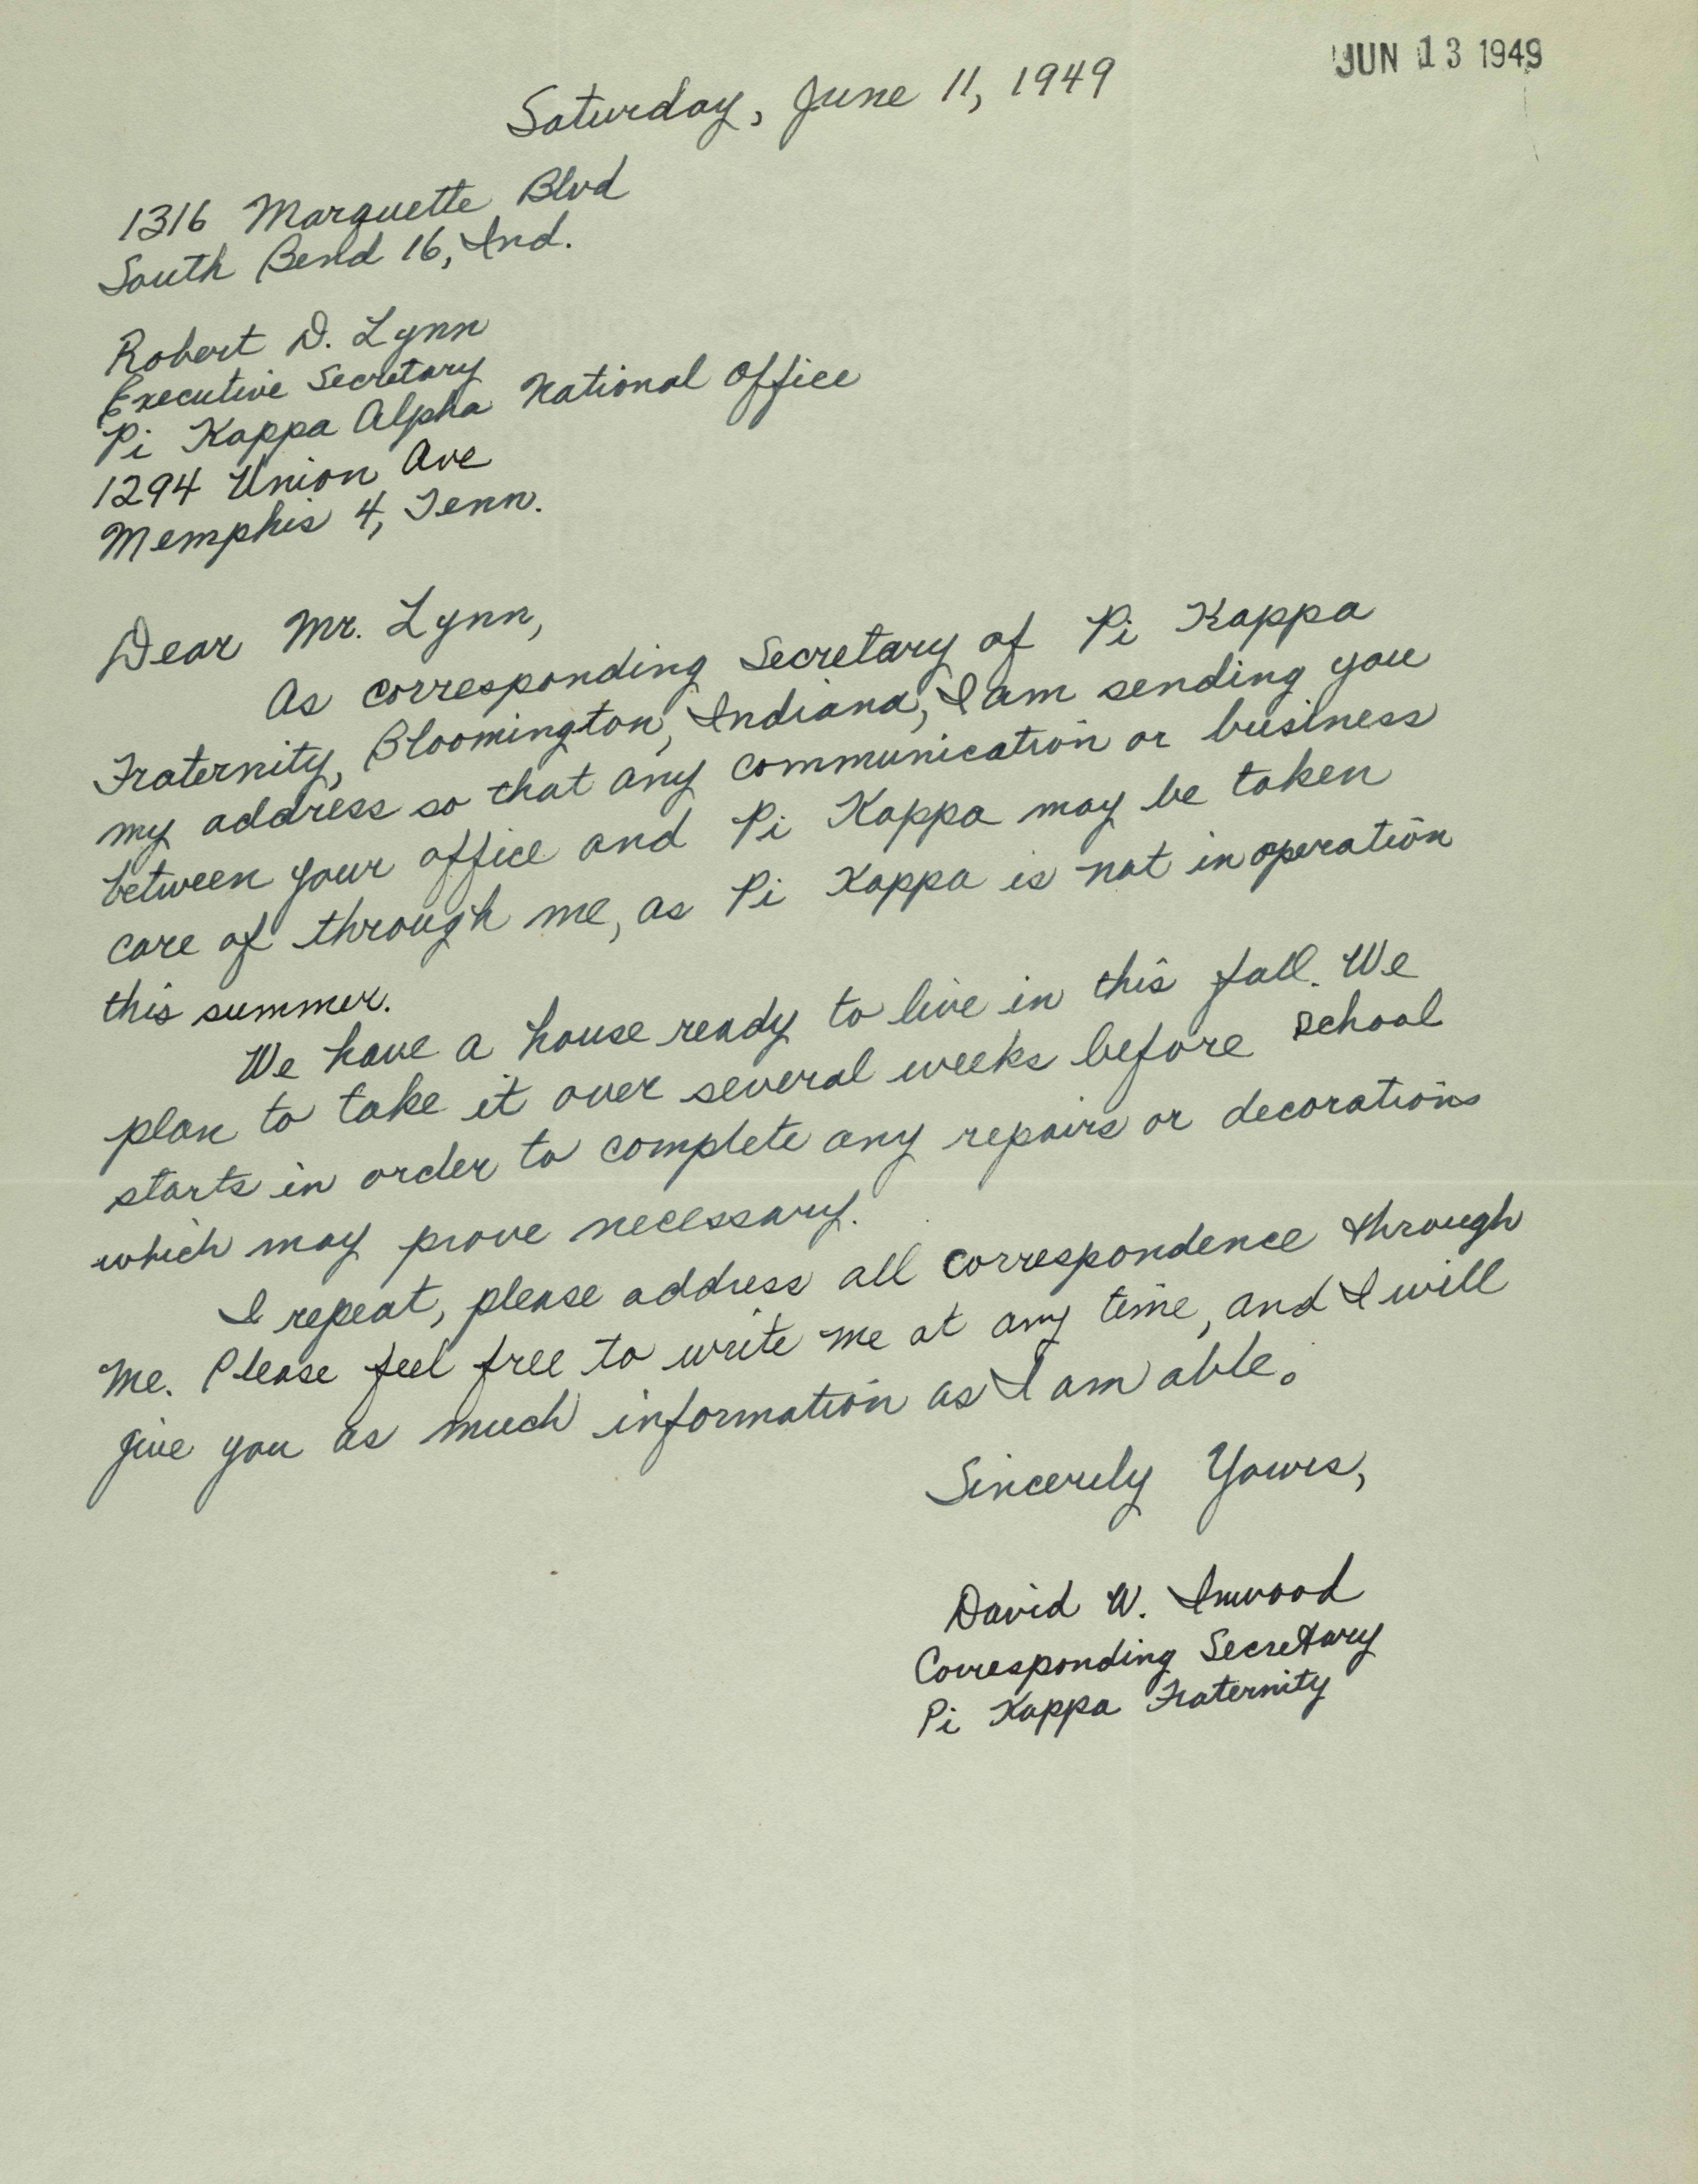 JUN 13 1949
Saturday, June 11, 1949
1316 Marquette Blvd
South Bend 16, Ind.
Robert D. Lynn
Executive Secretary
Pi Kappa Alpha National Office
1294 Union Ave
Memphis 4, Tenn.
Dear Mr. Lynn,
As corresponding Secretary of Pi Kappa
Fraternity, Bloomington, Indiana, I am sending you
my address so that any communication or business
between your office and Pi Kappa may be taken
care of through me, as Pi Kappa is not in operation
this summer.
We have a house ready to live in this fall. We
plan to take it over several weeks before school
starts in order to complete any repairs or decorations
which may prove necessary.
I repeat, please address all correspondence through
me. Please feel free to write me at any time, and I will
give you as much information as I am able.
Sincerely Yours,
David W. Inwood
Corresponding Secretary
Pi Kappa Fraternity